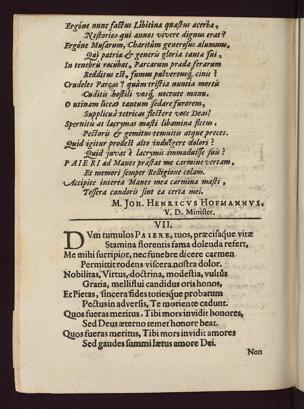 Ergóne nunc factus Libitinæ quæstus acerbæ,
Nestorios qui annos vivere dignus erat?
Ergóne Musarum, Charitúm generosus alumnus,
Quò patria & generis gloria tanta sui,
In tenebris recubat, Parcarum præda ferarum
Redditus est, fumus pulvereusq; cinis?
Crudeles Parcas! quàm tristia nuntia mortis
Cuditis hostili voisq; nocente manu.
O utinam liceat tantum sedare furorem,
Supplicuâ tetricas flectere voce Deas!
Spernitis at lacrymas mæsti libamina fletus,
Pectoris & gemitus temnitis atque preces.
Quid igitur prodest alto indulgere dolori?
Quid juvat? lacrymis immaduisse suis?
PAIERI ad Manes præstat me carmine versam,
Et memori semper Religione colam.
Accipite interea Manes mea carmina mæsti,
Tessera candoris sint ea certa mei.
M. JOH. HENRICVS HOFMANNVS,
V. D. Minister.
VII.
DVm tumulos PAIERE, tuos, præcisaque vitæ
Stamina florentis fama dolenda refert,
Me mihi surripior, nec funebre dicere carmen
Permittit rodens viscera nostra dolor.
Nobilitas, Virtus, doctrina, modestia, vultus
Gratia, mellitisui candidus oris honos,
Et Pietas, sincera fides totiesque probatum
Pectus in adversis, Te moriente cadunt.
Quos fueras meritus, Tibi mors invidit honores,
Sed Deus æterno temet honore beat.
Quos fueras meritus, Tibi mors invidit amores
Sed gaudes summi lætus amore Dei.
Non